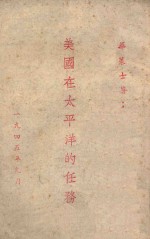 士著
美國在太平洋的任務
一九四五年月